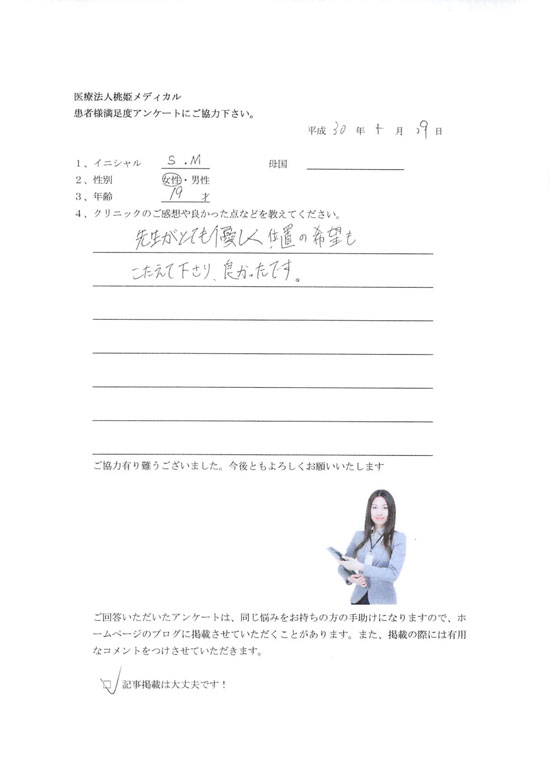 医療法人桃姫メディカル
患者様満足度アンケートにご協力下さい。
平成 30 年 月 29 日
1、イニシャル S.M 母国
2、性別 女性・男性
3、年齢 19 才
4、クリニックのご感想や良かった点などを教えてください。
先生がとても優しく、位置の希望も
こたえて下さり、良かったです。
ご協力有り難うございました。今後ともよろしくお願いいたします
ご回答いただいたアンケートは、同じ悩みをお持ちの方の手助けになりますので、ホ
ームページのブログに掲載させていただくことがあります。また、掲載の際には有用
なコメントをつけさせていただきます。
記事掲載は大丈夫です！